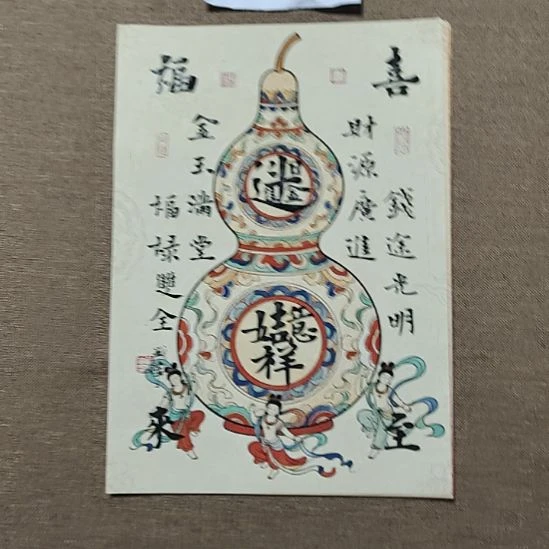 喜至
錢途光明
財源廣進
吉祥如意
金玉滿堂
福祿雙全
福來